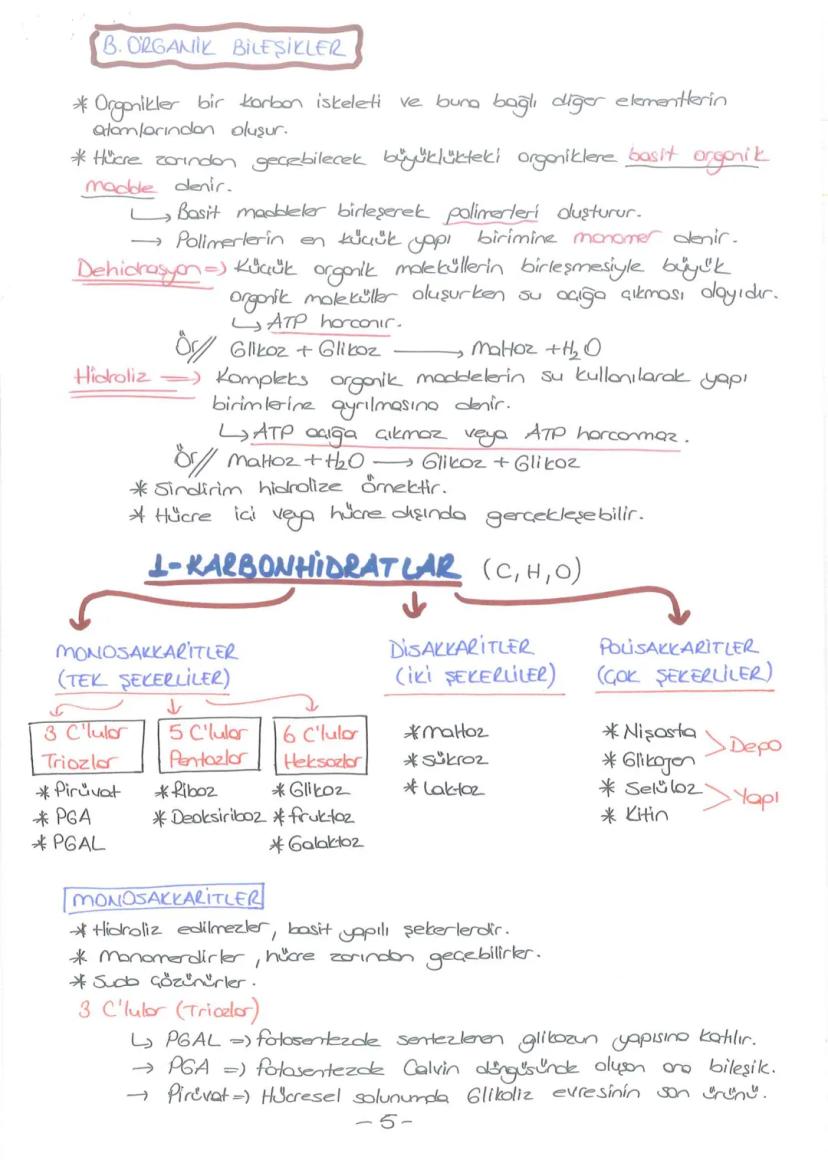 B. ORGANİK BİLEŞİKLER
* Organikler bir karbon iskeleti ve buna bağlı diğer elementlerin
atomlarından oluşur.
* Hücre zarından geçebilecek büyüklükteki organiklere basit organik
madde denir.
↳ Basit maddeler birleşerek polimerleri oluşturur.
→ Polimerlerin en küçük yapı birimine monomer denir.
Dehidrasyon => Küçük organik moleküllerin birleşmesiyle büyük
organik moleküller oluşurken su açığa çıkması olayıdır.
↳ ATP harcanır.
Ör// Glikoz + Glikoz → Maltoz + H₂O
Hidroliz => Kompleks organik maddelerin su kullanılarak yapı
birimlerine ayrılmasına denir.
↳ ATP açığa çıkmaz veya ATP harcanmaz.
Ör// Maltoz + H₂O → Glikoz + Glikoz
* Sindirim hidrolize örnektir.
* Hücre içi veya hücre dışında gerçekleşebilir.
1-KARBONHİDRATLAR (C, H, O)
MONOSAKKARİTLER
(TEK ŞEKERLİLER)
DİSAKKARİTLER
(İKİ ŞEKERLİLER)
POLİSAKKARİTLER
(ÇOK ŞEKERLİLER)
3 C'lular
Triozlar
5 C'lular
Pentozlar
6 C'lular
Heksozlar
* Pirüvat
* PGA
* PGAL
* Riboz
* Deoksiriboz
* Glikoz
* Fruktoz
* Galaktoz
* Maltoz
* Sükroz
* Laktoz
* Nişasta
* Glikojen
Depo
* Selüloz
* Kitin
Yapı
MONOSAKKARİTLER
* Hidroliz edilmezler, basit yapılı şekerlerdir.
* Monomerdirler, hücre zarından geçebilirler.
* Suda çözünürler.
3 C'lular (Triozlar)
↳ PGAL => fotosentezde sentezlenen glikozun yapısına katılır.
→ PGA => fotosentezde Calvin döngüsünde oluşan ara bileşik.
→ Pirüvat => Hücresel solunumda Glikoliz evresinin son ürünü.
- 5 -